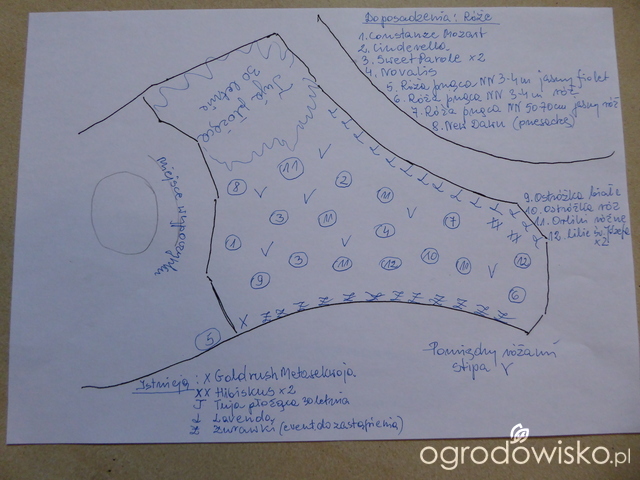 Do posadzenia: Róże
1. Constanze Mozart
2. Cinderella
3. Sweet Parole x2
4. Novalis
5. Róża pnąca NN 3-4m jasny fiolet
6. Róża pnąca NN 3-4m róż
7. Róża pnąca NN 50 70cm jasny róż
8. New Dawn (przesadzę)
9. Ostróżka białe
10. Ostróżka róż
11. Orliki różne
12. Lilie św Józefa
x2
Tuja płożąca
30 letnia
miejsce wypoczynku
8 11 2 11
3 11 4 7
1 3 11 12 10 11 12
9 6
5
XX
XX
X
Pomiędzy różami
stipa V
Istnieją: X Goldrush Metasekwoja
XX Hibiskus x2
T Tuja płożąca 30 letnia
Ł Lavenda
Ż Żurawki (event do zastąpienia)
ogrodowisko.pl